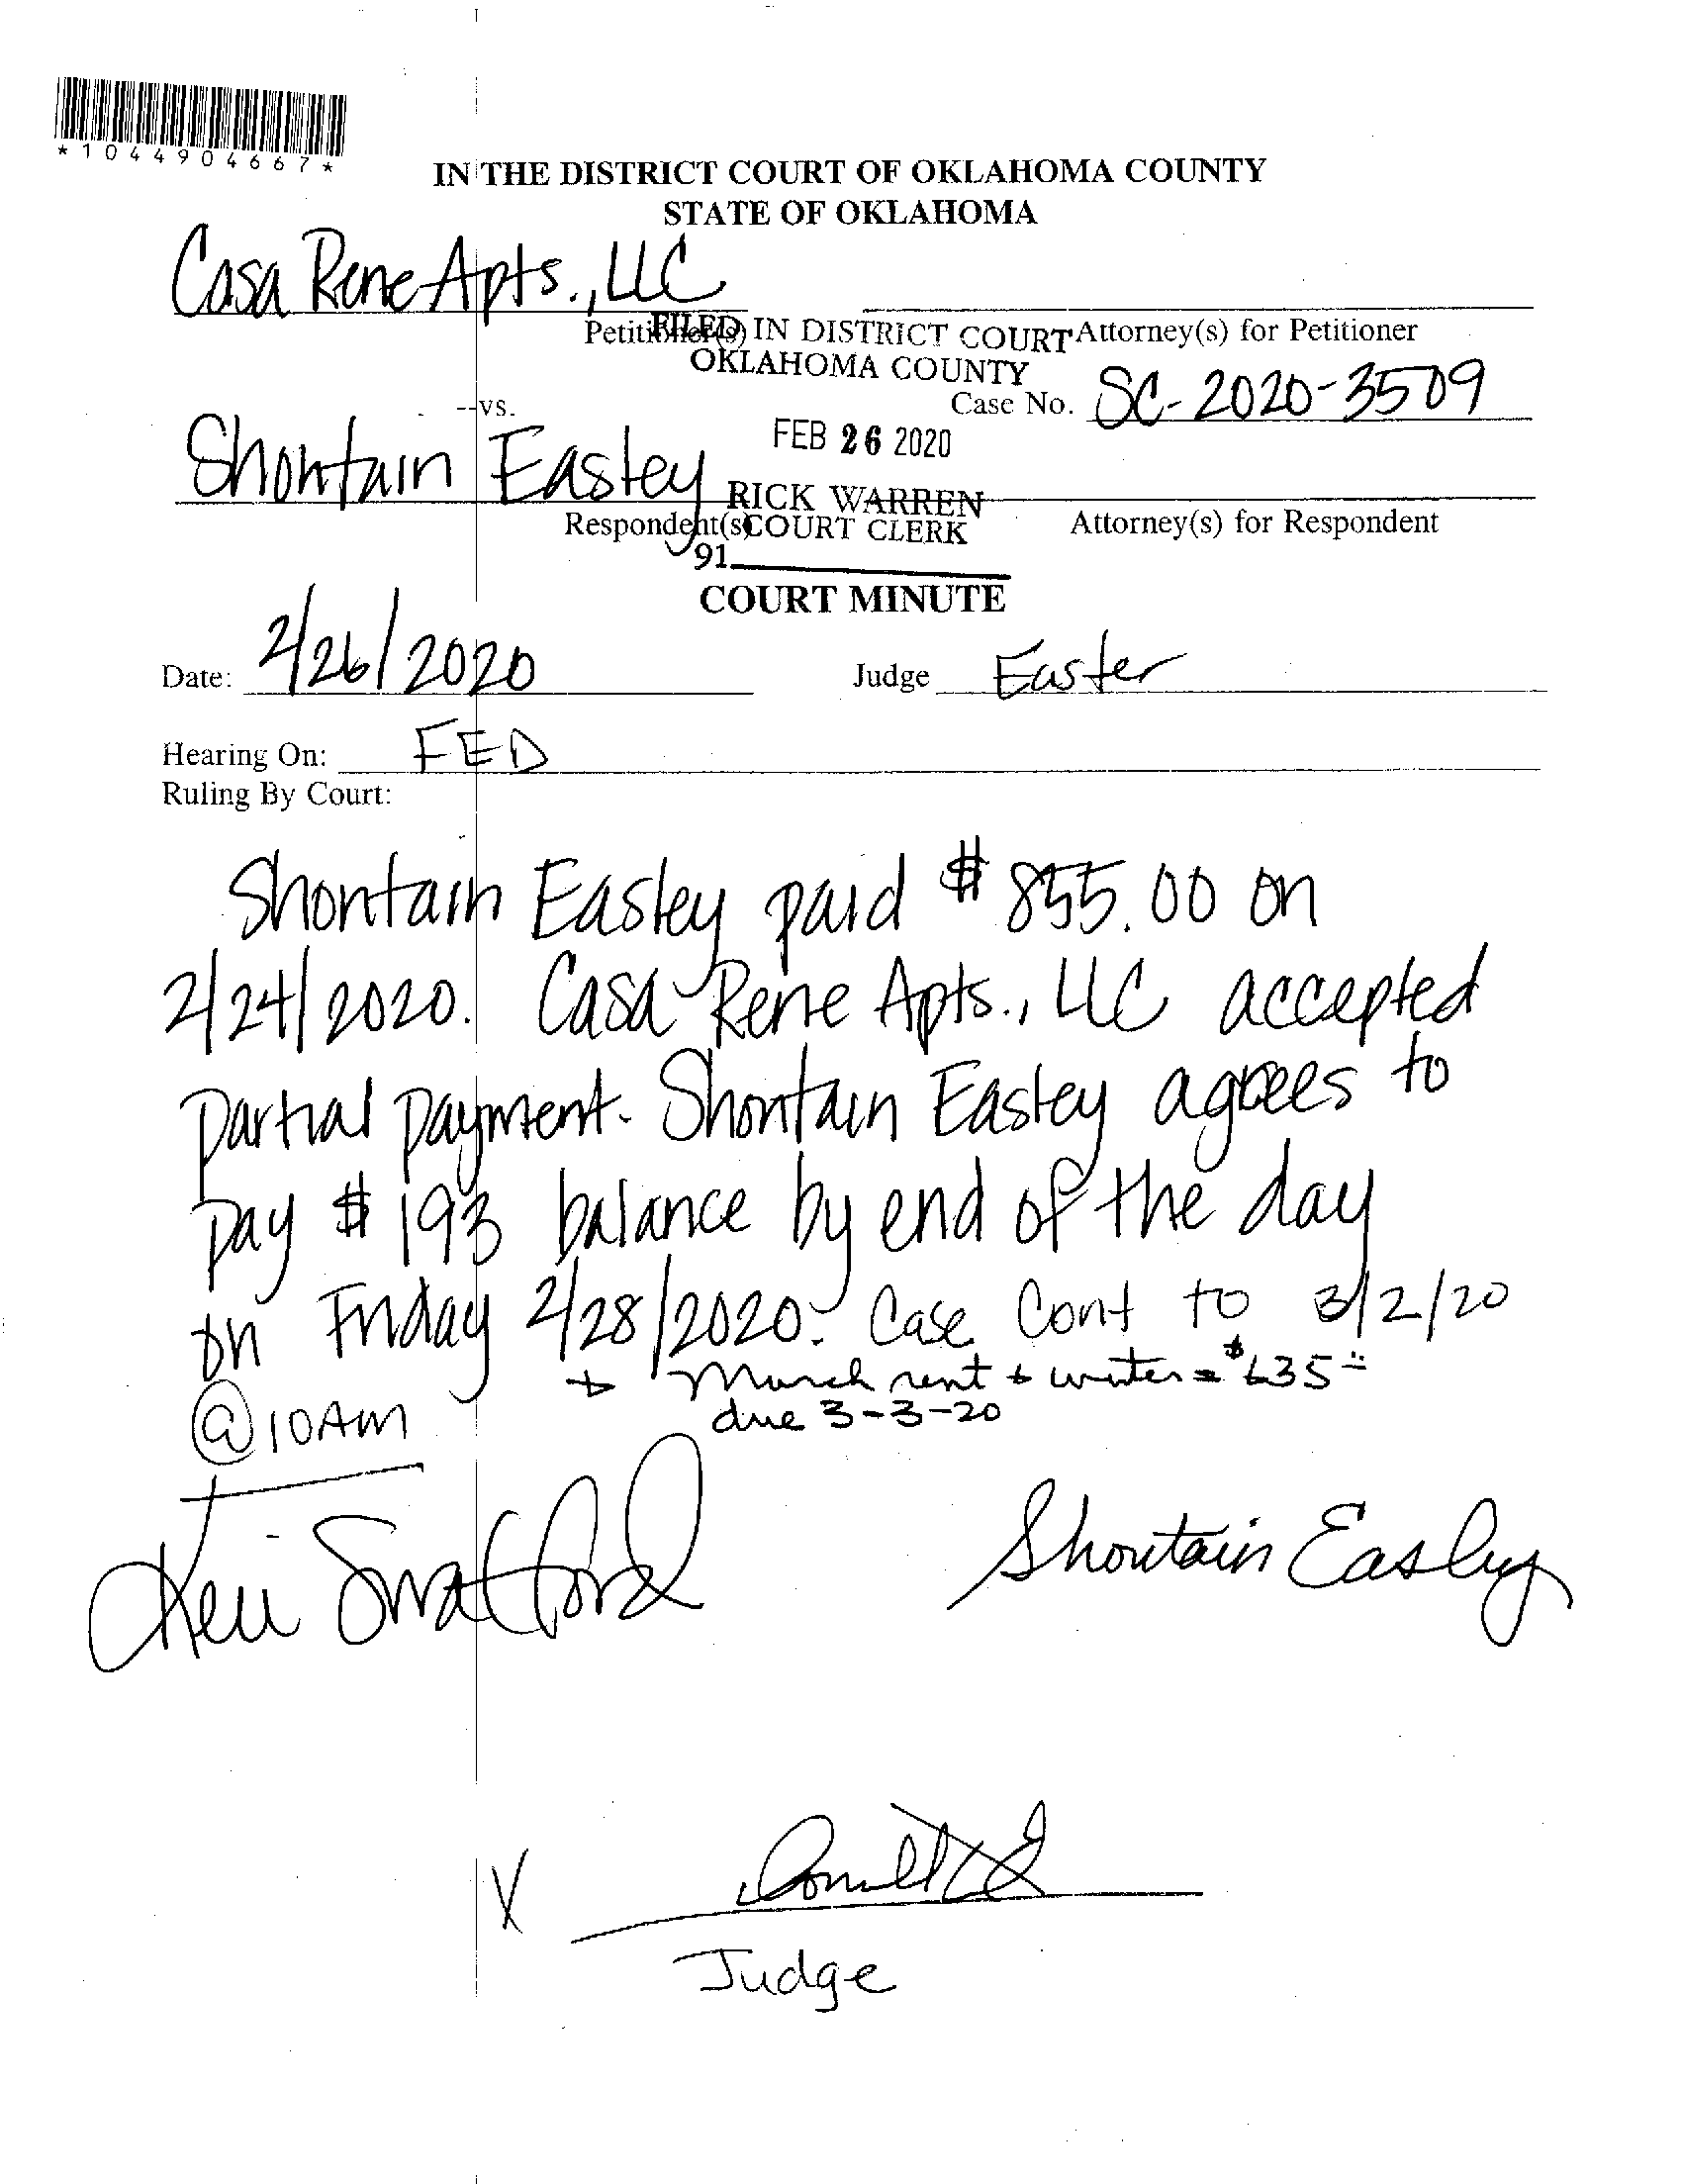 *1044904667*
IN THE DISTRICT COURT OF OKLAHOMA COUNTY
STATE OF OKLAHOMA
Casa Rene Apts., LLC
Petitioner(s) Attorney(s) for Petitioner
FILED IN DISTRICT COURT
OKLAHOMA COUNTY
--vs. Case No. SC-2020-3509
FEB 26 2020
Shontain Easley
RICK WARREN
Respondent(s) COURT CLERK Attorney(s) for Respondent
91
COURT MINUTE
Date: 2/26/2020 Judge Easter
Hearing On: FED
Ruling By Court:
Shontain Easley paid $855.00 on
2/24/2020. Casa Rene Apts., LLC accepted
partial payment. Shontain Easley agrees to
pay $193 balance by end of the day
on Friday 2/28/2020. Case Cont to 3/2/20
+ March rent + water = $635
@10AM due 3-3-20
Shontain Easley
X
Judge